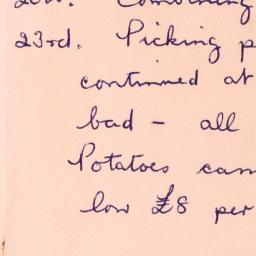 Combining
23rd. Picking p
continued at
bad - all
Potatoes cam
low £8 per